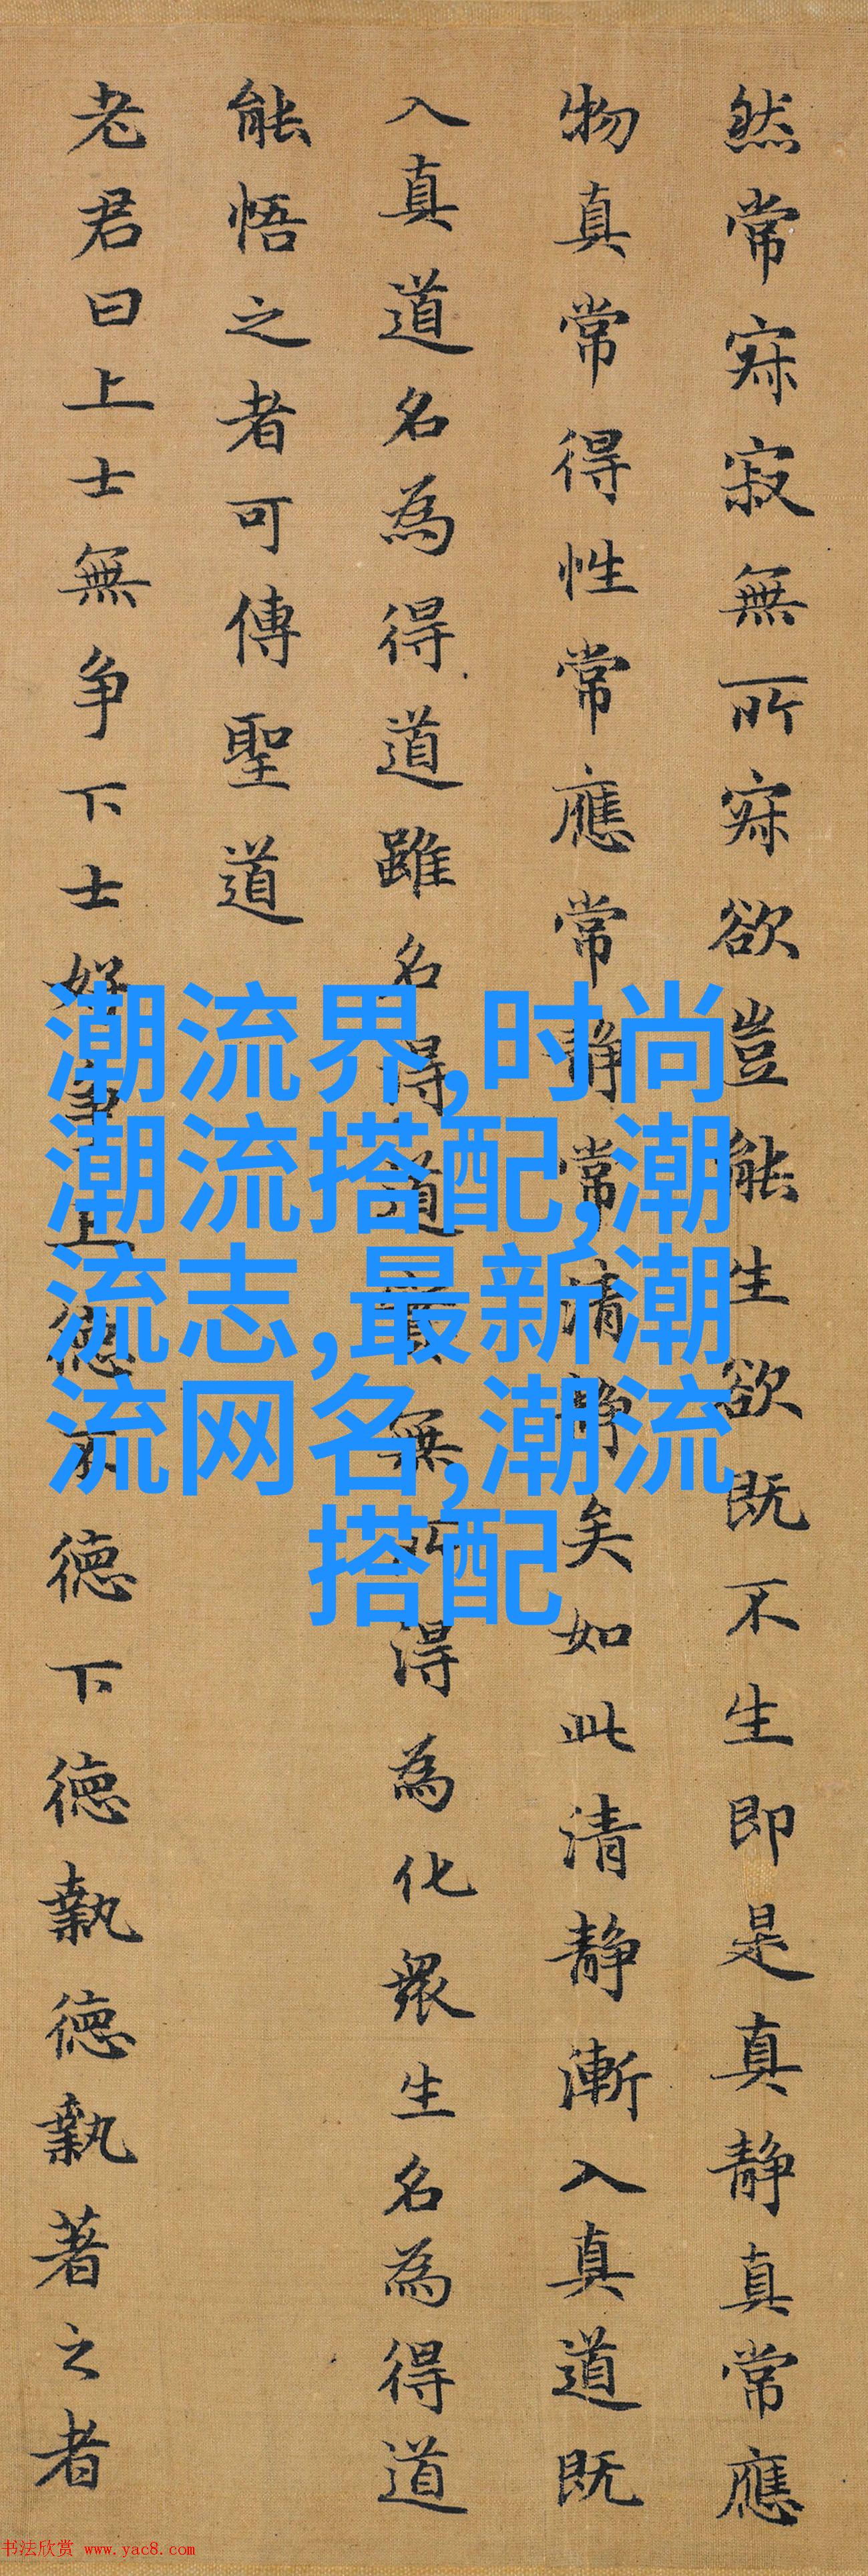 然常寂寂無所寂欲豈能生欲既不生即是真靜真常應
物真常得性常應常靜常清靜矣如此清靜漸入真道既
入真道名為得道雖名得道實無所得為化衆生名為得道
能悟之者可傳聖道
老君曰上士無争下士好争上德不德下德執德執著之者
潮流界,时尚
潮流搭配,潮
流志,最新潮
流网名,潮流
搭配
书法欣赏 www.yac8.com